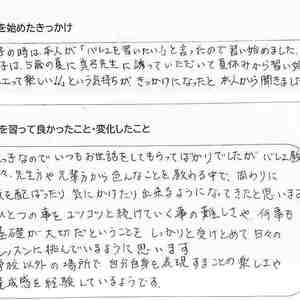 を始めたきっかけ
子の時は本人が「バレエを習いたい」と言ったので習い始めました。
子は、5歳の夏に真弓先生に誘っていただいて夏休みから習い始
エって楽しい!!」という気持ちがきっかけになったと本人から聞きました
を習って良かったこと・変化したこと
っ子なのでいつもお世話をしてもらってばかりでしたがバレエ
々、先生方や先輩方から色んなことを教わる中で、周りに
を配ばったり気にかけたり出来るようになってきたと思います
ひとつの事をコツコツと続けていく事の難しさや何事も
基礎が大切だということをしっかりと受けとめて日々の
レッスンに挑んでいるように思います
学校以外の場所で自分自身を表現することの楽しさや
達成感を経験しているようです。